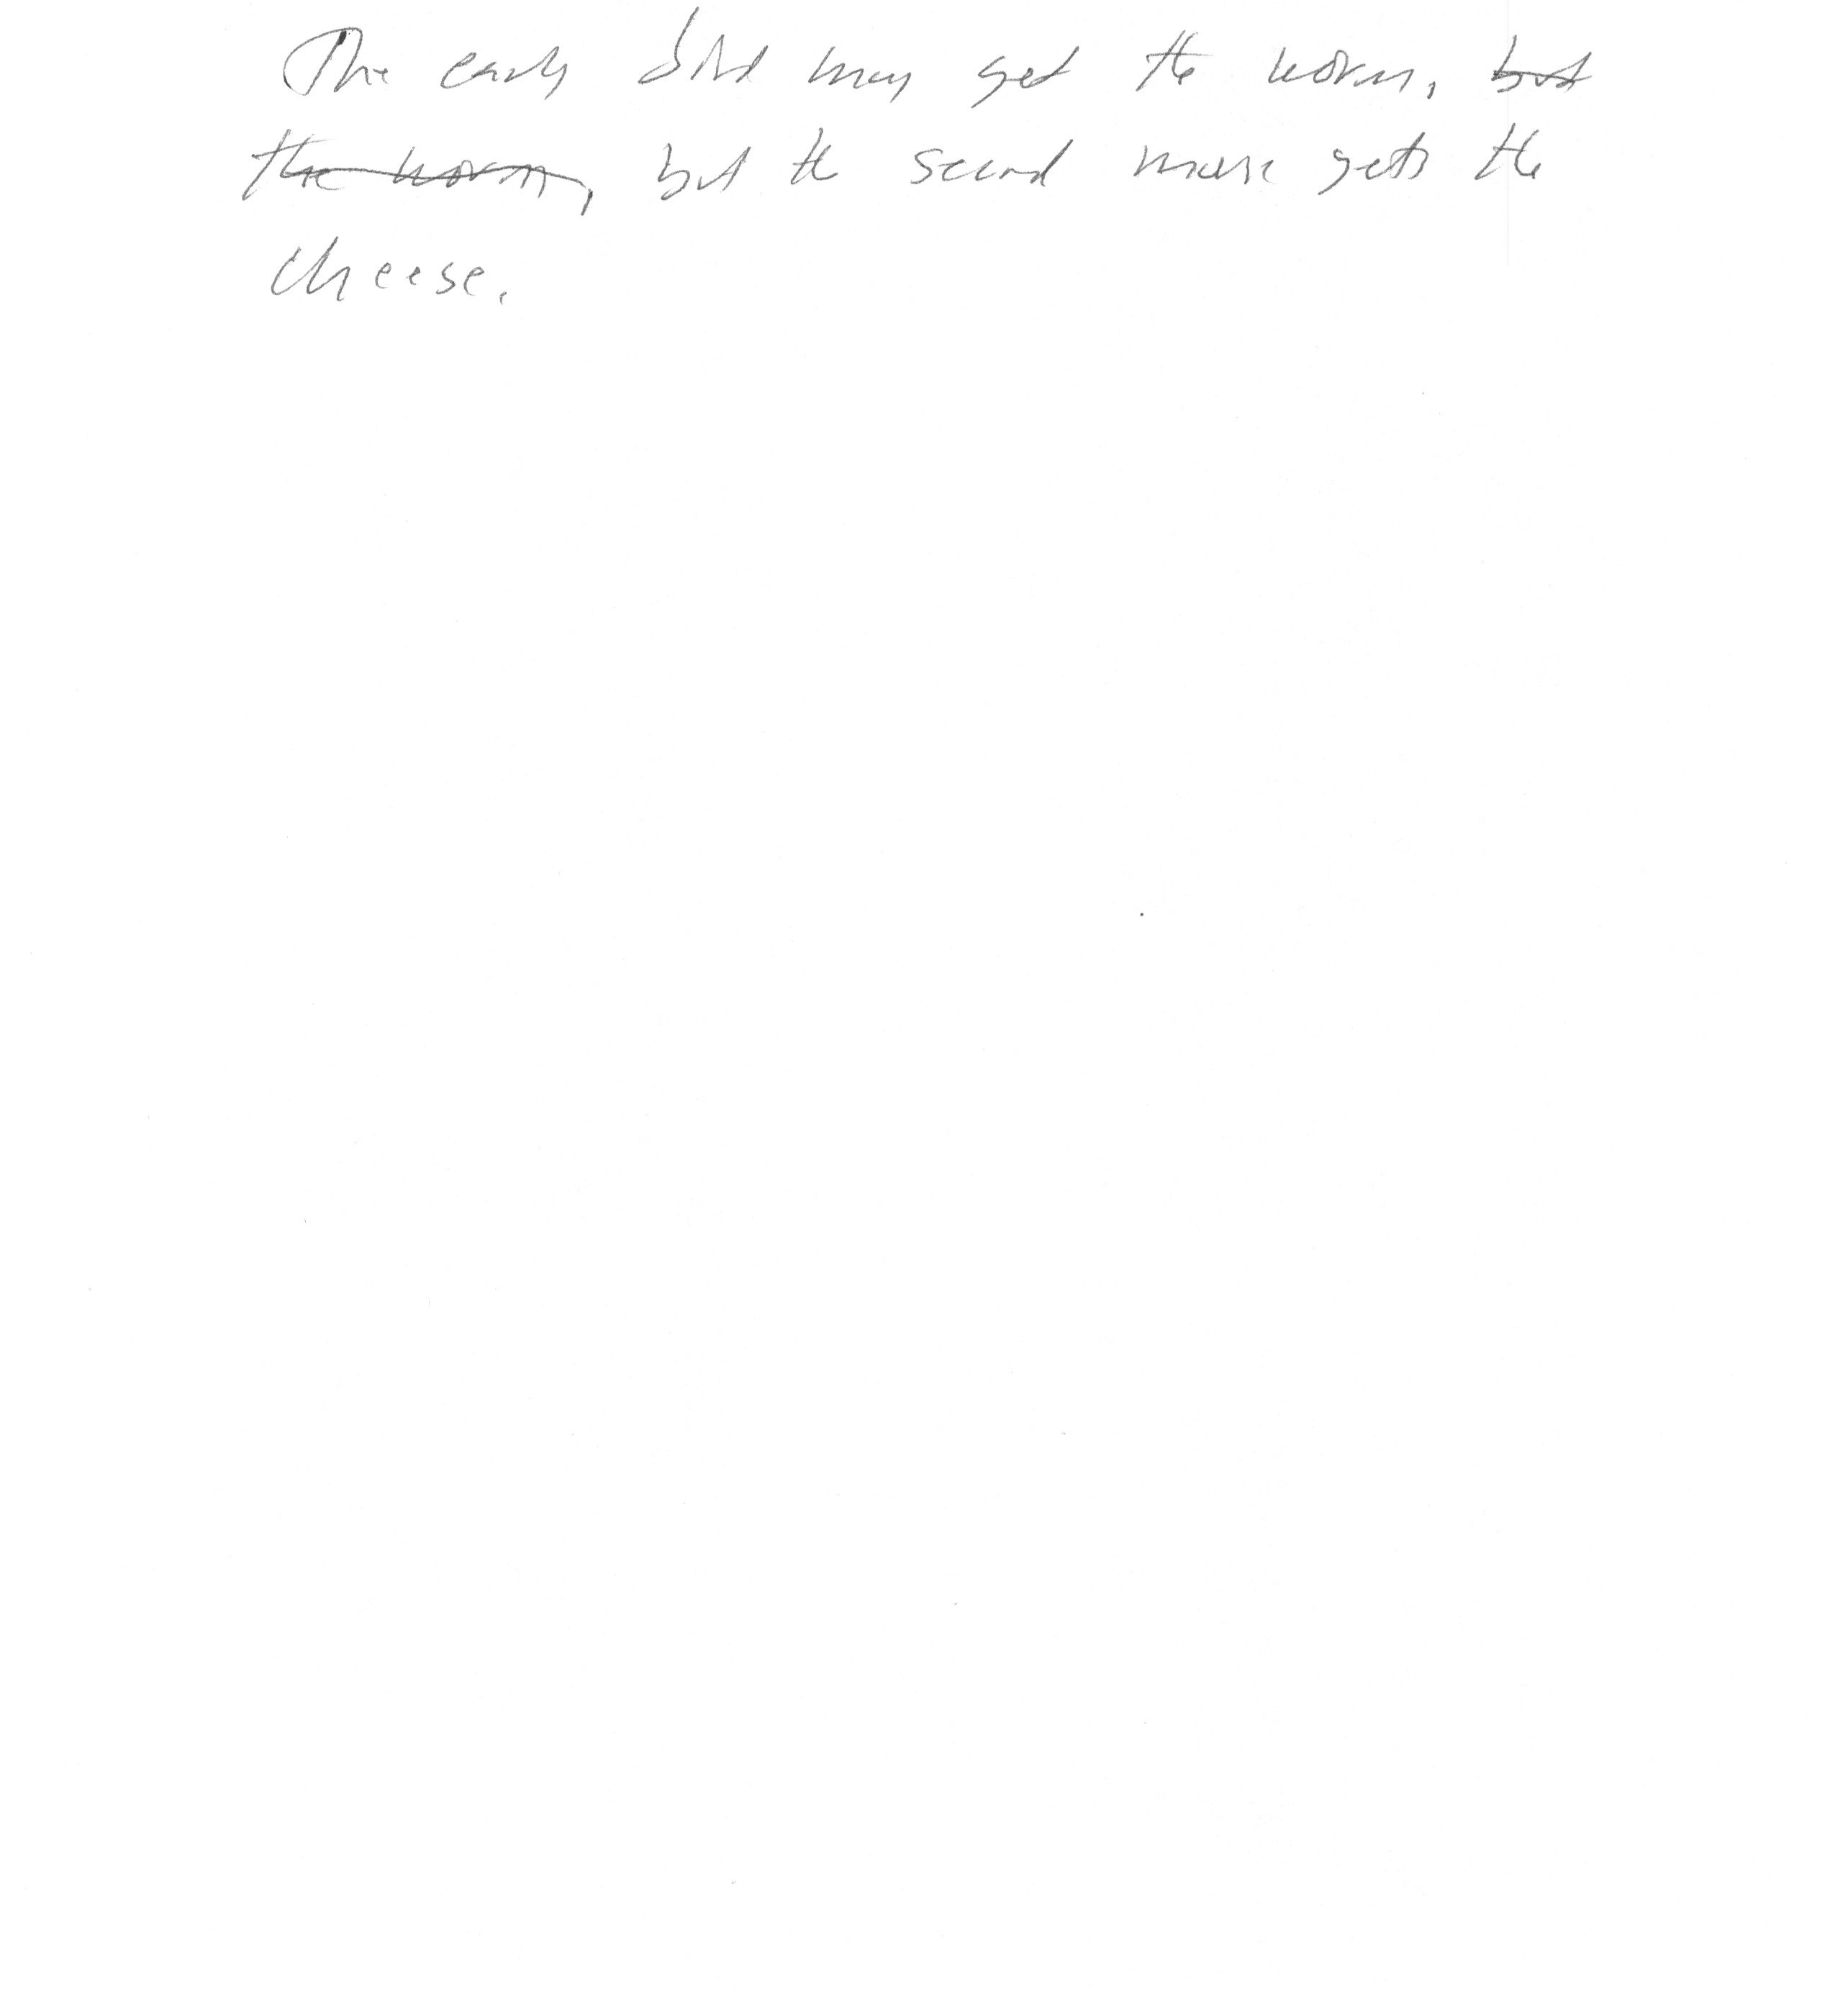 The early bird may get the worm, but
the worm, but the second mouse gets the
cheese.